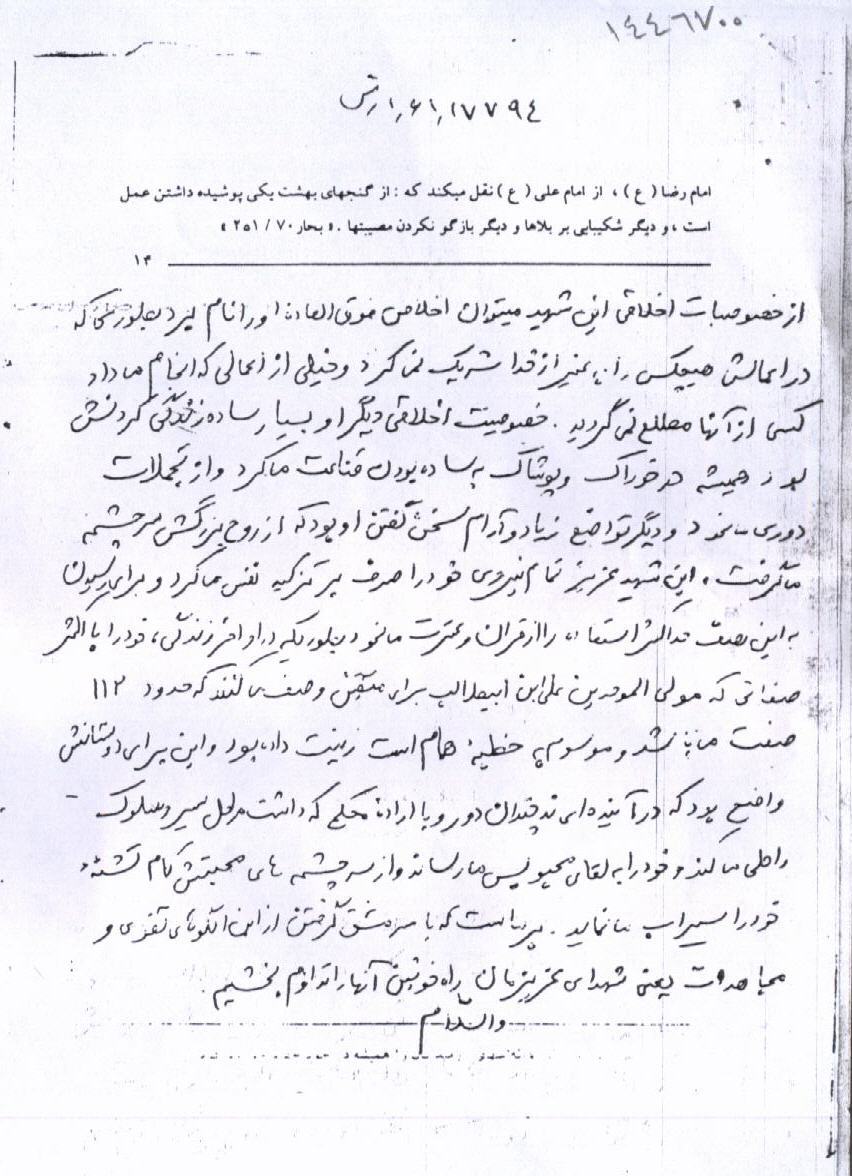 ١٤٤٦٧٠٠
١٧٧٩٤
امام رضا (ع) ، از امام علی (ع) نقل میکند که : از گنجهای بهشت یکی پوشیده داشتن عمل
است ، و دیگر شکیبایی بر بلاها و دیگر بازگو نکردن مصیبتها . « بحار ٧٠ / ٢٥١ »
١٣
از خصوصیات اخلاقی این شهید میتوان اخلاص فوق العاده او را نام برد بطوریکه
در اعمالش هیچکس را بغیر از خدا شریک نمی کرد و خیلی از اعمالی که انجام میداد
کسی از آنها مطلع نمی گردید . خصوصیت اخلاقی دیگر او بسیار ساده زندگی کردنش
بود همیشه در خوراک و پوشاک به ساده بودن قناعت میکرد و از تجملات
دوری مینمود و دیگر تواضع زیاد و آرام سخن گفتن او بود که از روح بزرگش سرچشمه
میگرفت . این شهید عزیز تمام نیروی خود را صرف بر تزکیه نفس میکرد و برای رسیدن
به این هدف حداکثر استفاده را از قرآن و عترت مینمود بطوریکه در اواخر زندگی ، خود را با اکثر
صفاتی که مولی الموحدین علی ابن ابیطالب برای متقین وصف می کنند که حدود ١١٢
صفت میباشد و موسوم به خطبهٔ همام است زینت داده بود و این برای دوستانش
واضح بود که در آینده ای نه چندان دور و با ارادهٔ محکم که داشت مراحل سیر و سلوک
را طی میکند و خود را به لقای محبوبش میرساند و از سرچشمه های محبتش کام تشنهٔ
خود را سیراب مینماید . است که با سرمشق گرفتن از این الگوهای تقوی و
مجاهدت یعنی شهدای عزیزمان راه خونین آنها را تداوم بخشیم .
والسلام